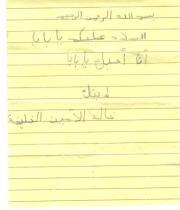 بسم الله الرحمن الرحيم
السلام عليكم يا بابا
أنا أحبك يا بابا
خالد الأمين الخليفة